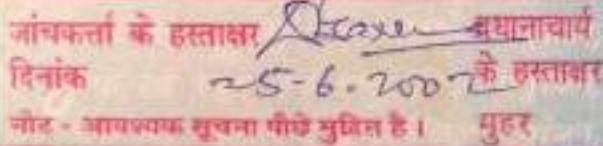 जांचकर्त्ता के हस्ताक्षर प्रधानाचार्य
दिनांक 25-6-2002 के हस्ताक्षर
नोट - आवश्यक सूचना पीछे मुद्रित है। मुहर